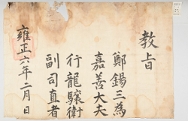 敎旨
鄭錫三爲
嘉善大夫
行龍驤衛
副司直者
雍正六年二月日